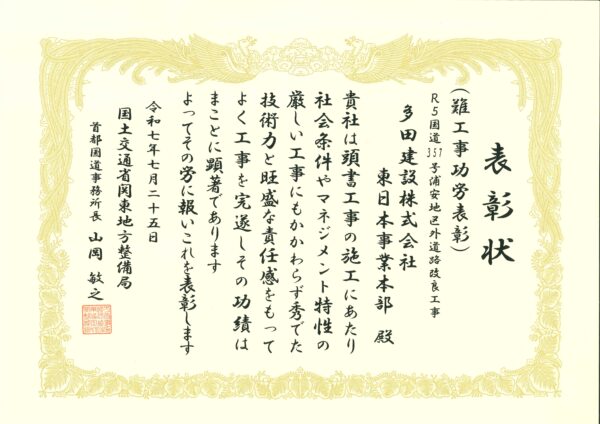 表彰状
（難工事功労表彰）
R5国道357号浦安地区外道路改良工事
多田建設株式会社
東日本事業本部 殿
貴社は頭書工事の施工にあたり
社会条件やマネジメント特性の
厳しい工事にもかかわらず秀でた
技術力と旺盛な責任感をもって
よく工事を完遂しその功績は
まことに顕著であります
よってその労に報いこれを表彰します
令和七年七月二十五日
国土交通省関東地方整備局
首都国道事務所長 山岡 敏之